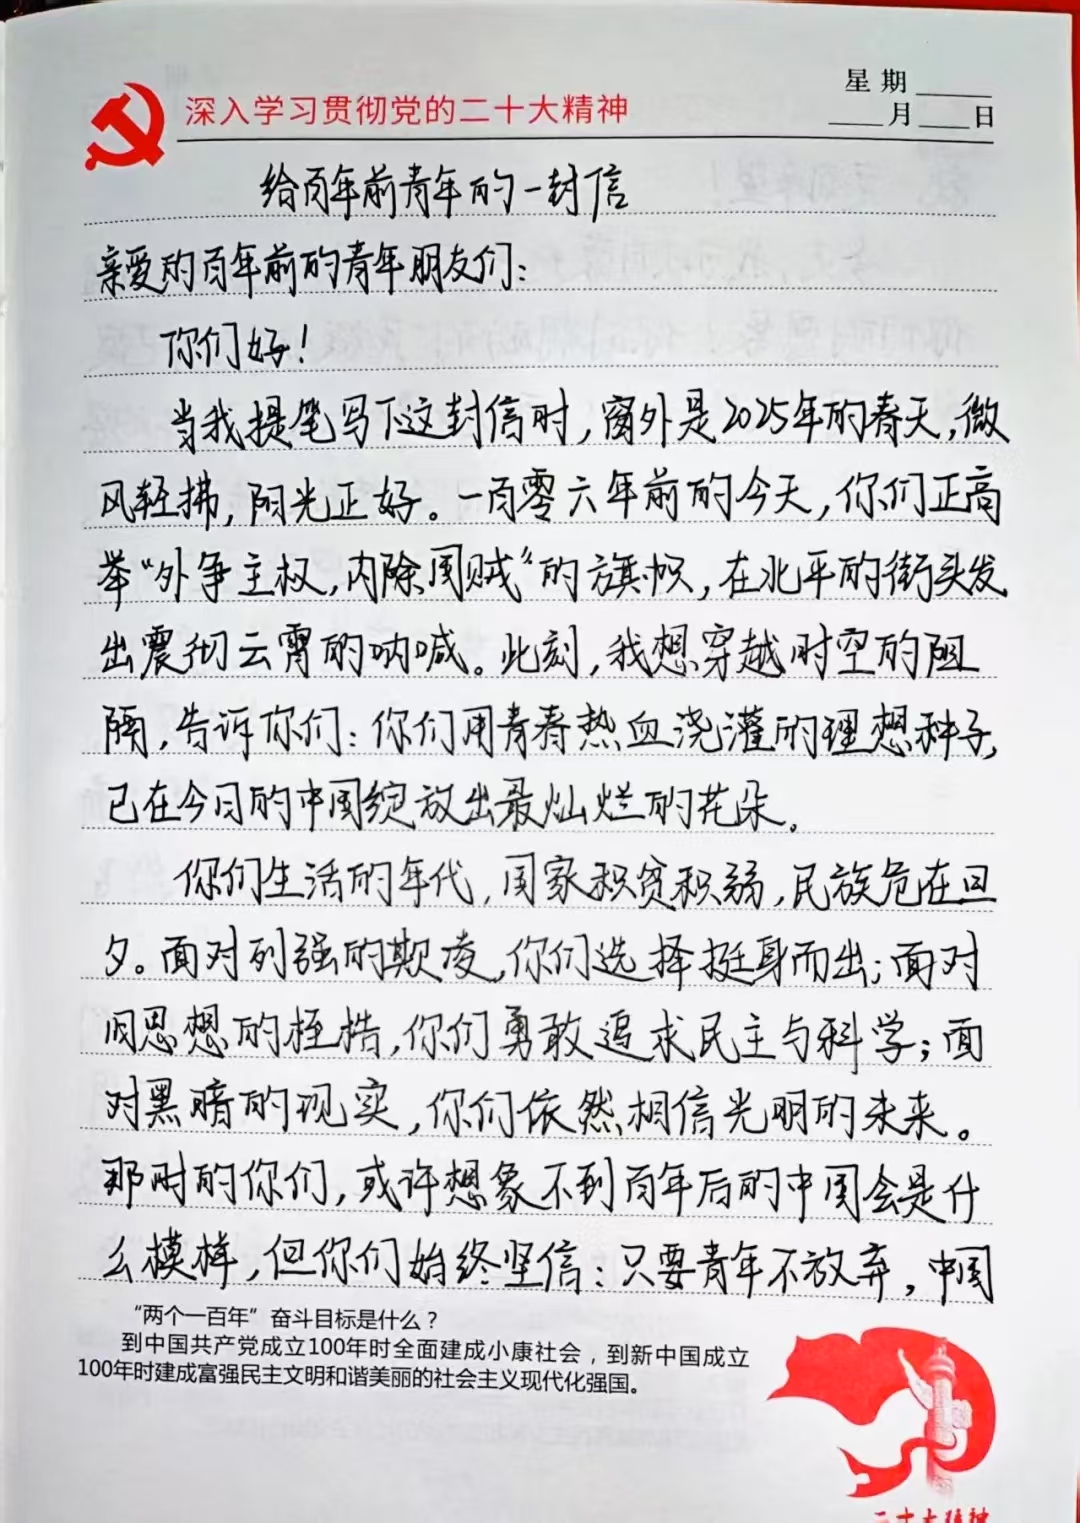 星期____
____月____日
深入学习贯彻党的二十大精神
给百年前青年的一封信
亲爱的百年前的青年朋友们：
你们好！
当我提笔写下这封信时，窗外是2025年的春天，微
风轻拂，阳光正好。一百零六年前的今天，你们正高
举“外争主权，内除国贼”的旗帜，在北平的街头发
出震彻云霄的呐喊。此刻，我想穿越时空的阻
隔，告诉你们：你们用青春热血浇灌的理想种子，
已在今日的中国绽放出最灿烂的花朵。
你们生活的年代，国家积贫积弱，民族危在旦
夕。面对列强的欺凌，你们选择挺身而出；面对
旧思想的桎梏，你们勇敢追求民主与科学；面
对黑暗的现实，你们依然相信光明的未来。
那时的你们，或许想象不到百年后的中国会是什
么模样，但你们始终坚信：只要青年不放弃，中国
“两个一百年”奋斗目标是什么？
到中国共产党成立100年时全面建成小康社会，到新中国成立
100年时建成富强民主文明和谐美丽的社会主义现代化强国。
二十大精神